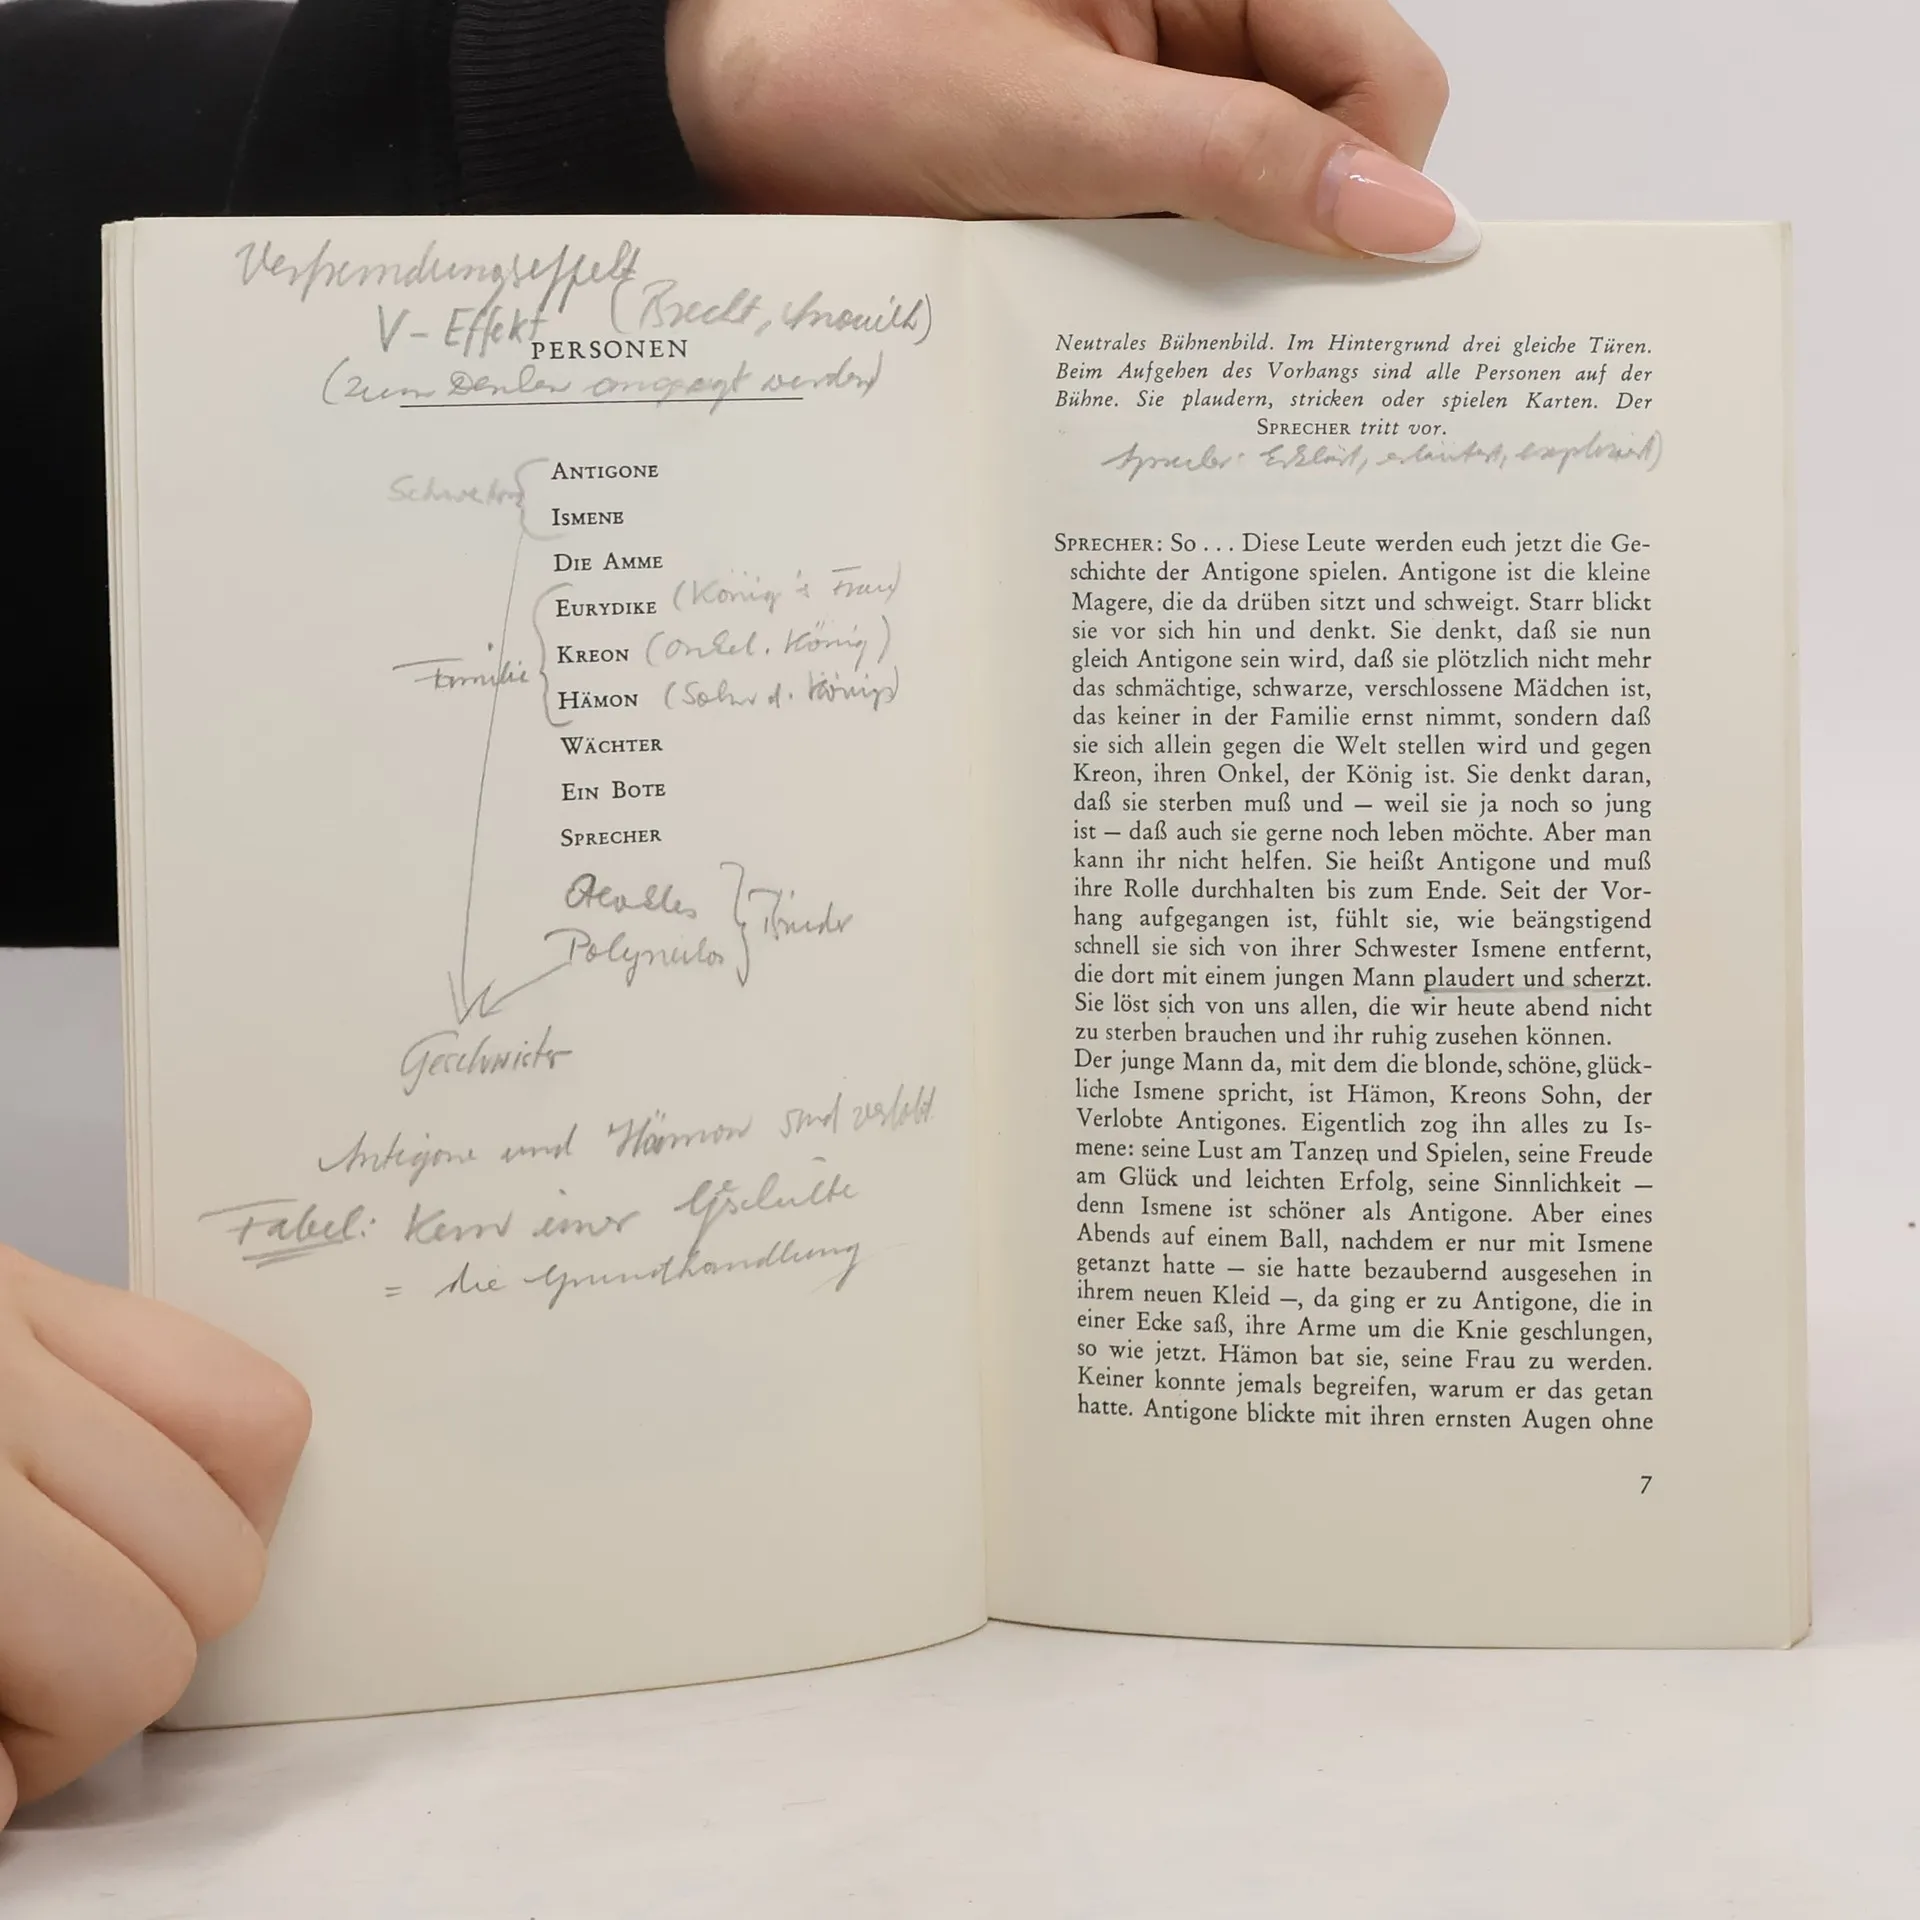 Verfremdungseffekt
V-Effekt (Brecht, Anouilh)
PERSONEN
(zum Denken angeregt werden)
ANTIGONE
Schwestern
ISMENE
DIE AMME
EURYDIKE (König's Frau)
KREON (Onkel. König)
Familie
HÄMON (Sohn d. Königs)
WÄCHTER
EIN BOTE
SPRECHER
Brüder
Geschwister
Antigone und Hämon sind verlobt.
Fabel: Kern einer
= die Grundhandlung
Neutrales Bühnenbild. Im Hintergrund drei gleiche Türen.
Beim Aufgehen des Vorhangs sind alle Personen auf der
Bühne. Sie plaudern, stricken oder spielen Karten. Der
SPRECHER tritt vor.
Sprecher: Erklärt, erläutert,
SPRECHER: So . . . Diese Leute werden euch jetzt die Ge-
schichte der Antigone spielen. Antigone ist die kleine
Magere, die da drüben sitzt und schweigt. Starr blickt
sie vor sich hin und denkt. Sie denkt, daß sie nun
gleich Antigone sein wird, daß sie plötzlich nicht mehr
das schmächtige, schwarze, verschlossene Mädchen ist,
das keiner in der Familie ernst nimmt, sondern daß
sie sich allein gegen die Welt stellen wird und gegen
Kreon, ihren Onkel, der König ist. Sie denkt daran,
daß sie sterben muß und — weil sie ja noch so jung
ist — daß auch sie gerne noch leben möchte. Aber man
kann ihr nicht helfen. Sie heißt Antigone und muß
ihre Rolle durchhalten bis zum Ende. Seit der Vor-
hang aufgegangen ist, fühlt sie, wie beängstigend
schnell sie sich von ihrer Schwester Ismene entfernt,
die dort mit einem jungen Mann plaudert und scherzt.
Sie löst sich von uns allen, die wir heute abend nicht
zu sterben brauchen und ihr ruhig zusehen können.
Der junge Mann da, mit dem die blonde, schöne, glück-
liche Ismene spricht, ist Hämon, Kreons Sohn, der
Verlobte Antigones. Eigentlich zog ihn alles zu Is-
mene: seine Lust am Tanzen und Spielen, seine Freude
am Glück und leichten Erfolg, seine Sinnlichkeit —
denn Ismene ist schöner als Antigone. Aber eines
Abends auf einem Ball, nachdem er nur mit Ismene
getanzt hatte — sie hatte bezaubernd ausgesehen in
ihrem neuen Kleid —, da ging er zu Antigone, die in
einer Ecke saß, ihre Arme um die Knie geschlungen,
so wie jetzt. Hämon bat sie, seine Frau zu werden.
Keiner konnte jemals begreifen, warum er das getan
hatte. Antigone blickte mit ihren ernsten Augen ohne
7